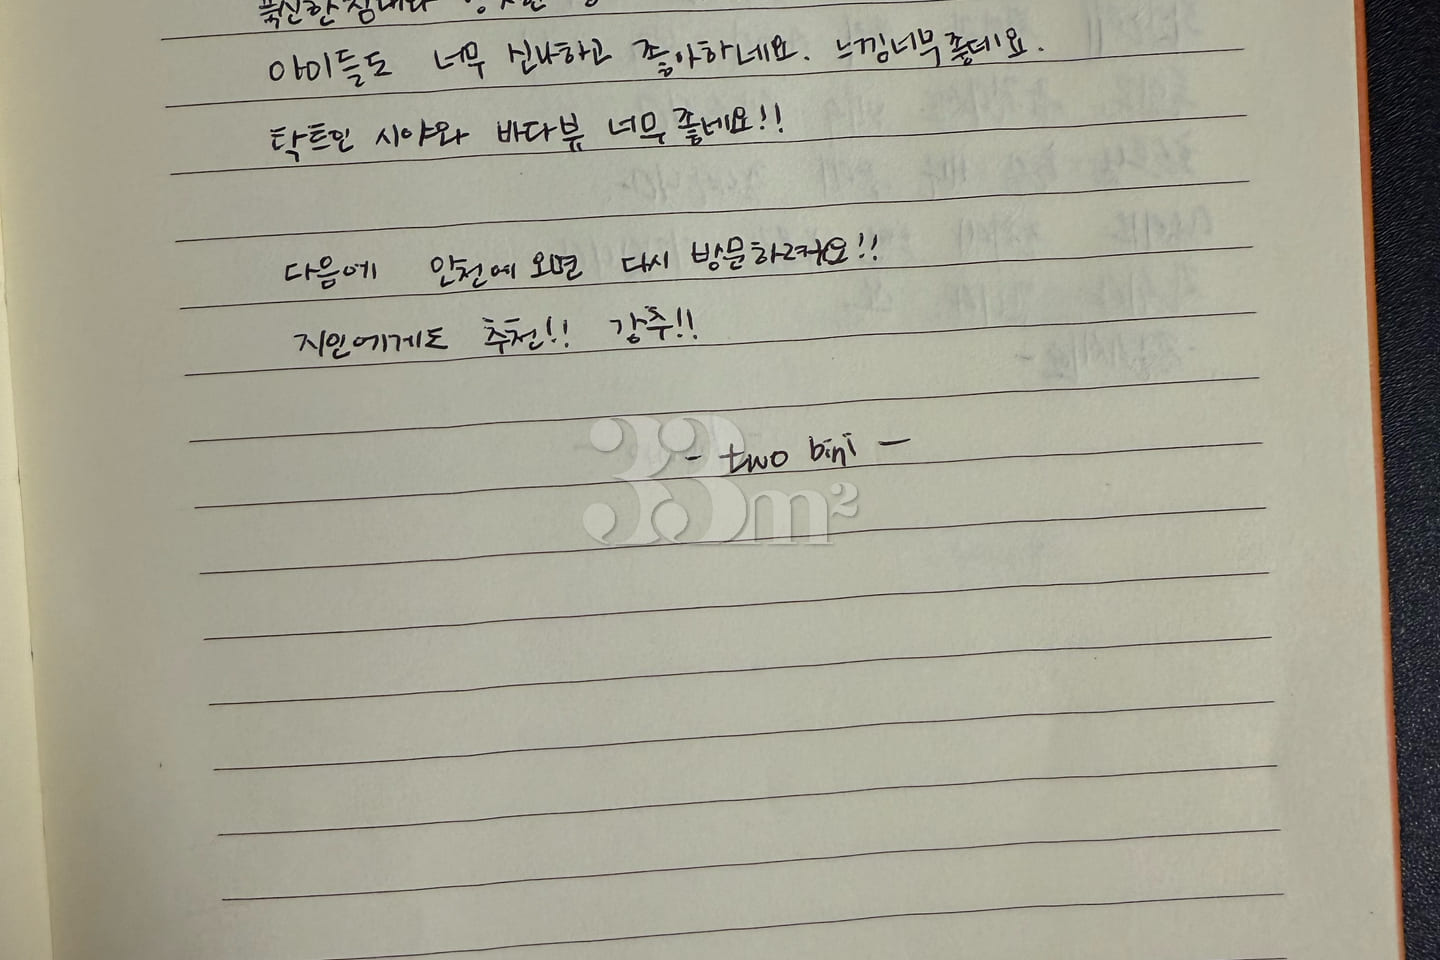 푹신한 침대와
아이들도 너무 신나하고 좋아하네요. 느낌너무좋데요.
탁트인 시야와 바다뷰 너무 좋네요!!
다음에 인천에 오면 다시 방문하려구요!!
지인에게도 추천!! 강추!!
- two bini -
33m²